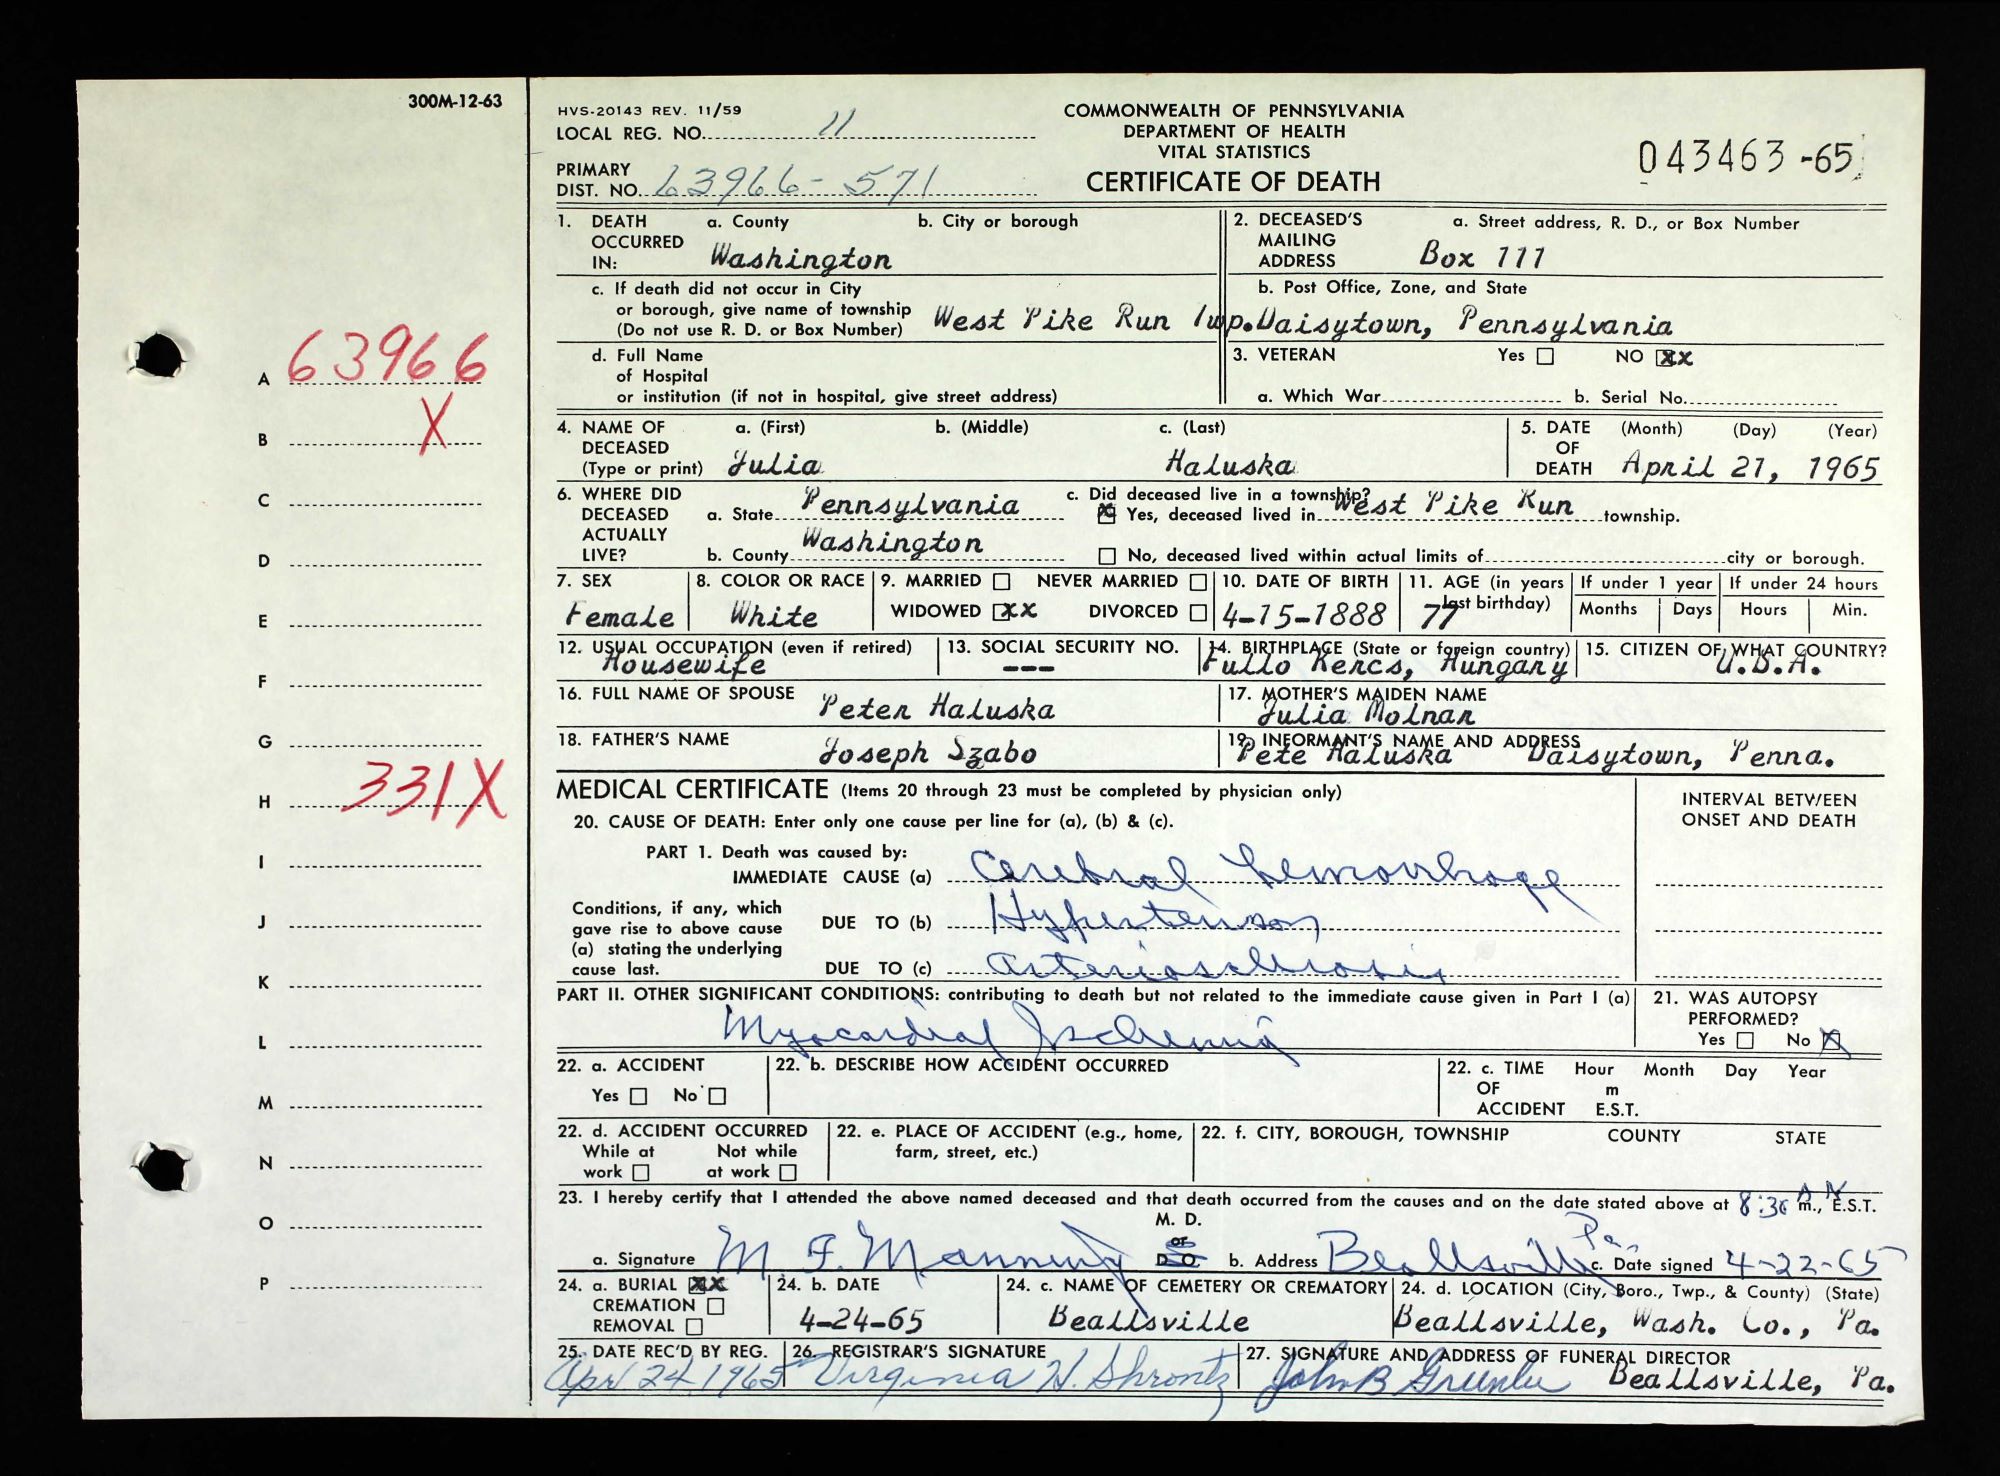 300M-12-63
HVS-20143 REV. 11/59
LOCAL REG. NO. 11
PRIMARY
DIST. NO. 63966-571
COMMONWEALTH OF PENNSYLVANIA
DEPARTMENT OF HEALTH
VITAL STATISTICS
CERTIFICATE OF DEATH
043463-65
A 63966
B X
C
D
E
F
G
H 331X
I
J
K
L
M
N
O
P
1. DEATH OCCURRED IN: a. County b. City or borough
Washington
c. If death did not occur in City
or borough, give name of township
(Do not use R. D. or Box Number) West Pike Run Twp.
d. Full Name
of Hospital
or institution (if not in hospital, give street address)
2. DECEASED'S MAILING ADDRESS a. Street address, R. D., or Box Number
Box 111
b. Post Office, Zone, and State
Daisytown, Pennsylvania
3. VETERAN Yes NO XX
a. Which War b. Serial No.
4. NAME OF DECEASED (Type or print) a. (First) b. (Middle) c. (Last)
Julia Haluska
5. DATE OF DEATH (Month) (Day) (Year)
April 21, 1965
6. WHERE DID DECEASED ACTUALLY LIVE?
a. State Pennsylvania
b. County Washington
c. Did deceased live in a township?
X Yes, deceased lived in West Pike Run township.
No, deceased lived within actual limits of city or borough.
7. SEX
Female
8. COLOR OR RACE
White
9. MARRIED NEVER MARRIED
WIDOWED XX DIVORCED
10. DATE OF BIRTH
4-15-1888
11. AGE (in years last birthday)
77
If under 1 year
Months Days
If under 24 hours
Hours Min.
12. USUAL OCCUPATION (even if retired)
Housewife
13. SOCIAL SECURITY NO.
---
14. BIRTHPLACE (State or foreign country)
Fullo Kercs, Hungary
15. CITIZEN OF WHAT COUNTRY?
U.S.A.
16. FULL NAME OF SPOUSE
Peter Haluska
17. MOTHER'S MAIDEN NAME
Julia Molnar
18. FATHER'S NAME
Joseph Szabo
19. INFORMANT'S NAME AND ADDRESS
Pete Haluska Daisytown, Penna.
MEDICAL CERTIFICATE (Items 20 through 23 must be completed by physician only)
INTERVAL BETWEEN
ONSET AND DEATH
20. CAUSE OF DEATH: Enter only one cause per line for (a), (b) & (c).
PART 1. Death was caused by:
IMMEDIATE CAUSE (a) Cerebral hemorrhage
Conditions, if any, which
gave rise to above cause
(a) stating the underlying
cause last.
DUE TO (b) Hypertension
DUE TO (c) Arteriosclerosis
PART II. OTHER SIGNIFICANT CONDITIONS: contributing to death but not related to the immediate cause given in Part I (a)
Myocardial Ischemia
21. WAS AUTOPSY
PERFORMED?
Yes No X
22. a. ACCIDENT
Yes No
22. b. DESCRIBE HOW ACCIDENT OCCURRED
22. c. TIME OF ACCIDENT Hour Month Day Year
m
E.S.T.
22. d. ACCIDENT OCCURRED
While at work Not while at work
22. e. PLACE OF ACCIDENT (e.g., home,
farm, street, etc.)
22. f. CITY, BOROUGH, TOWNSHIP COUNTY STATE
23. I hereby certify that I attended the above named deceased and that death occurred from the causes and on the date stated above at 8:30 A m., E.S.T.
a. Signature M F. Manning M. D. or D.O. b. Address Beallsville Pa. c. Date signed 4-22-65
24. a. BURIAL XX
CREMATION
REMOVAL
24. b. DATE
4-24-65
24. c. NAME OF CEMETERY OR CREMATORY
Beallsville
24. d. LOCATION (City, Boro., Twp., & County) (State)
Beallsville, Wash. Co., Pa.
25. DATE REC'D BY REG.
Apr 24 1965
26. REGISTRAR'S SIGNATURE
Virginia H. Shrontz
27. SIGNATURE AND ADDRESS OF FUNERAL DIRECTOR
John B Greenlee Beallsville, Pa.